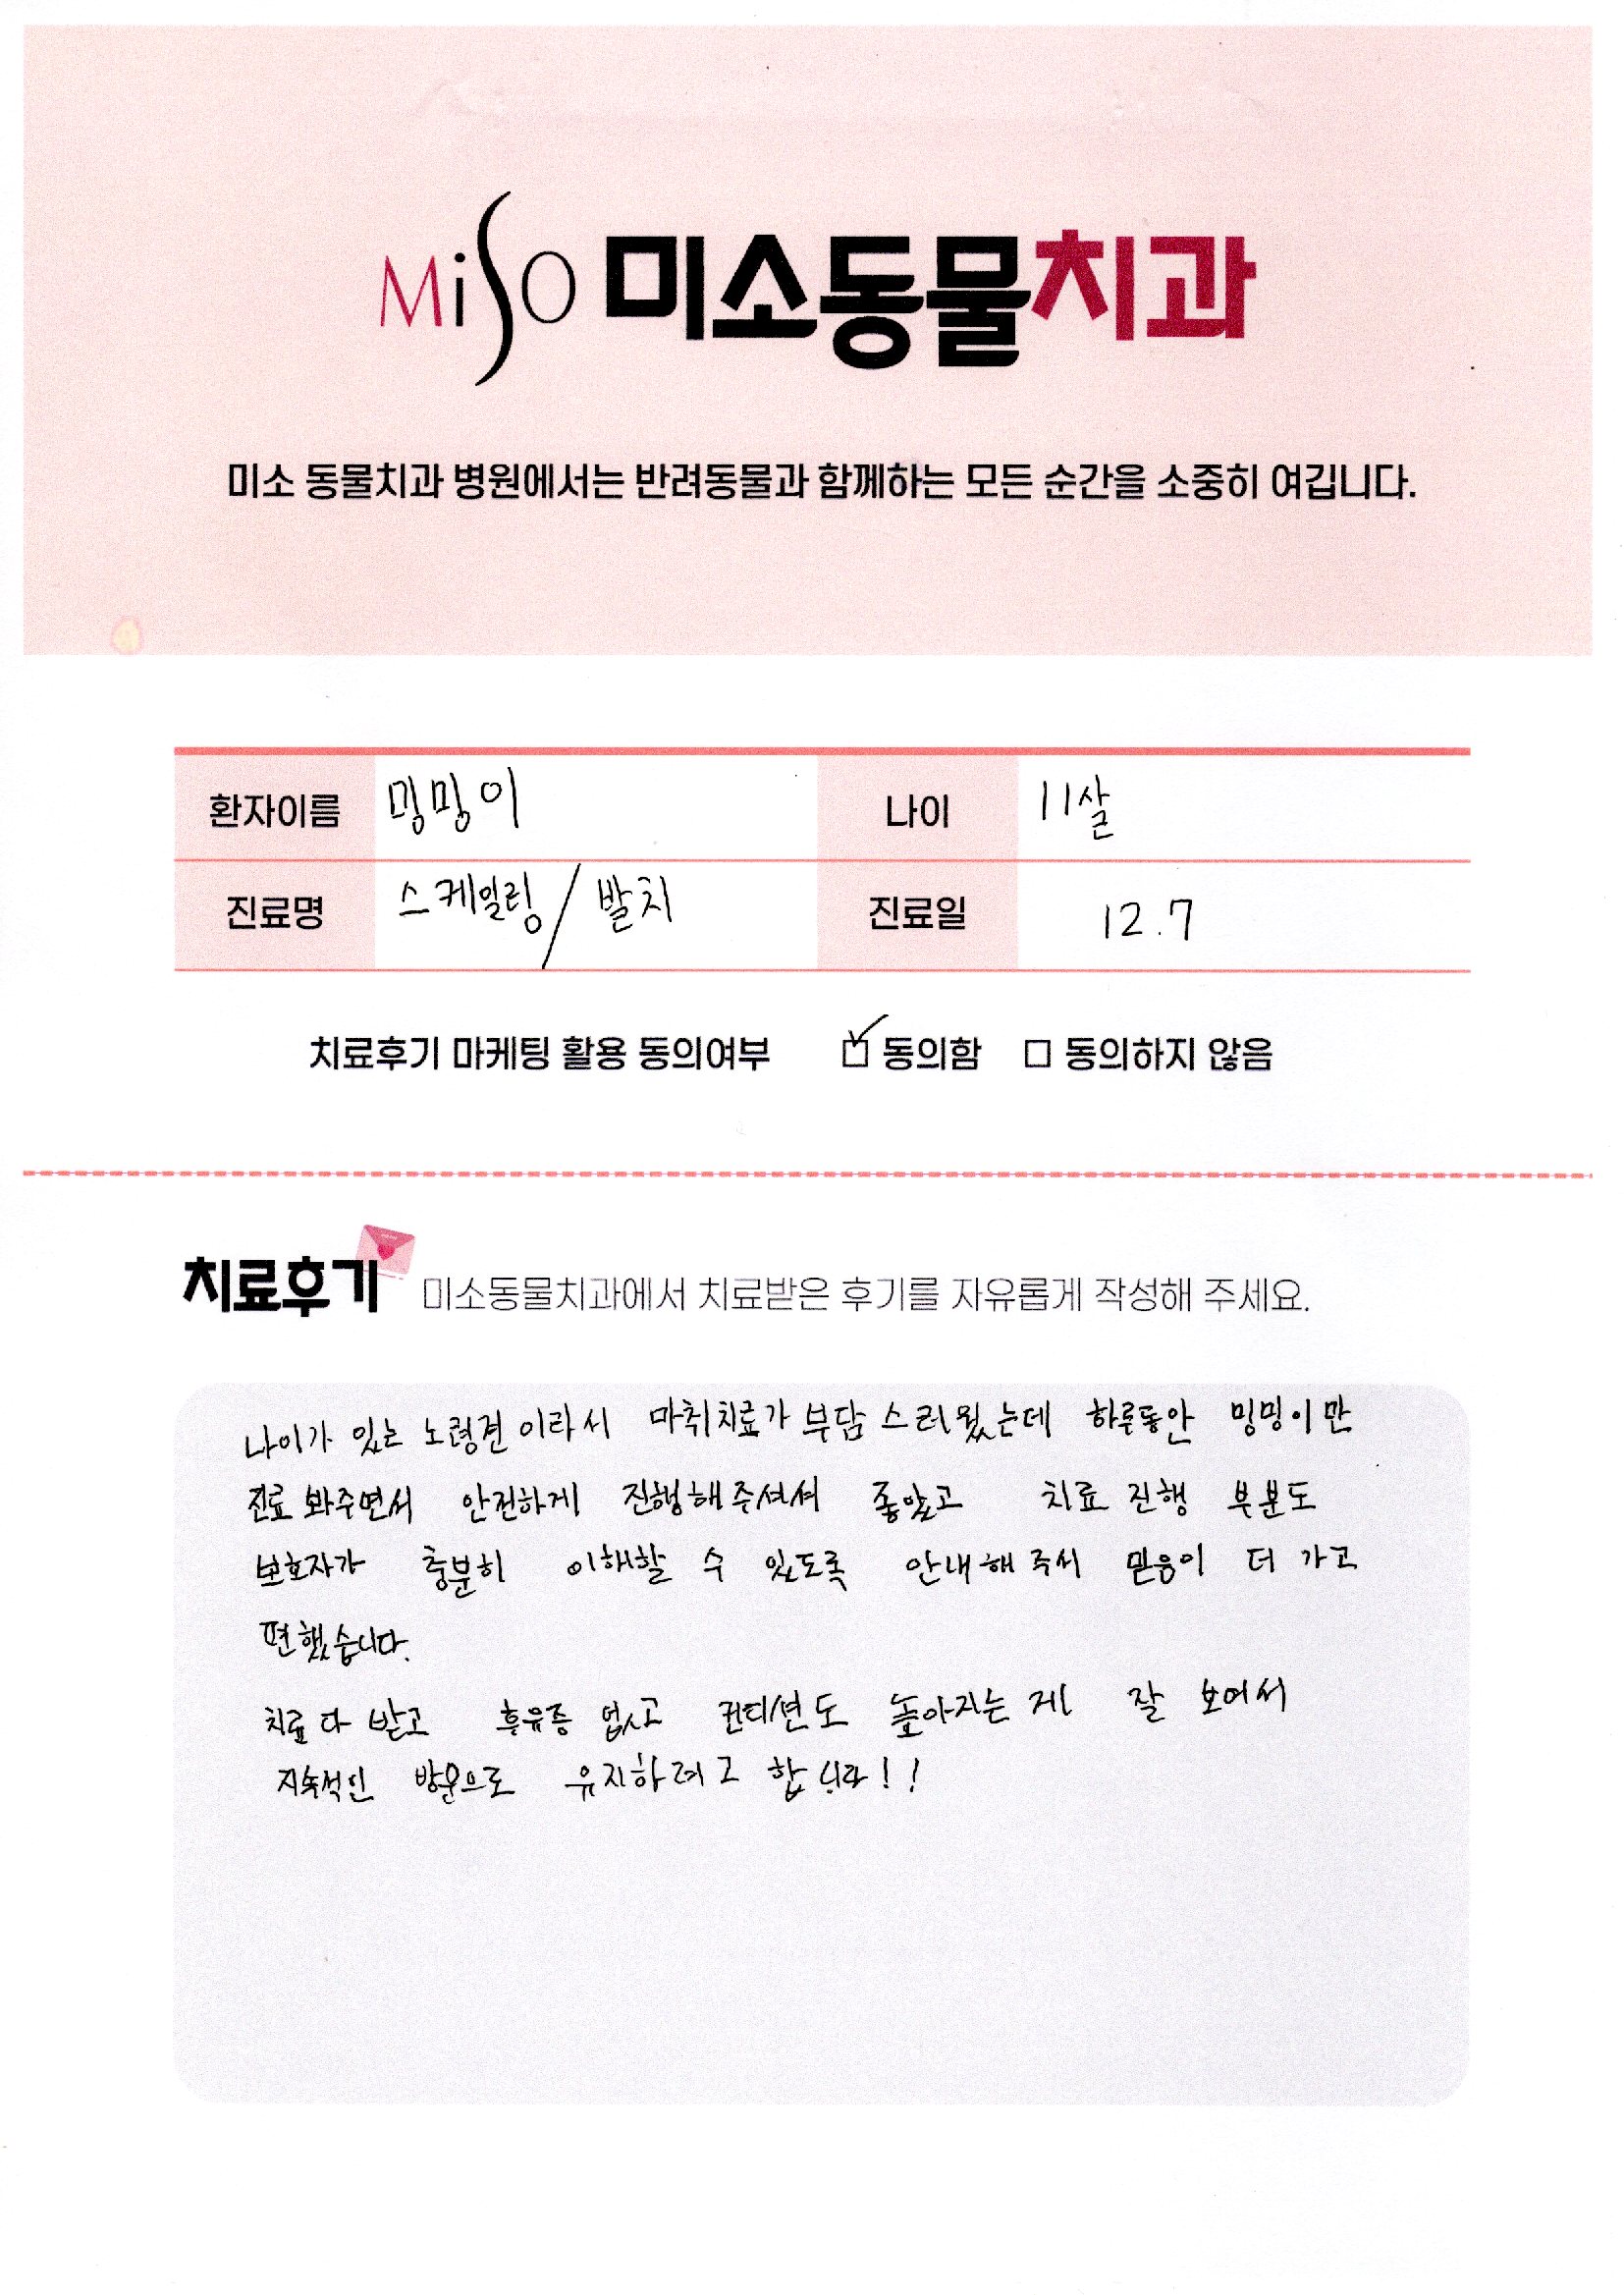 MiSO 미소동물치과
미소 동물치과 병원에서는 반려동물과 함께하는 모든 순간을 소중히 여깁니다.
환자이름 밍밍이 나이 11살
진료명 스케일링/발치 진료일 12.7
치료후기 마케팅 활용 동의여부 ☑ 동의함 □ 동의하지 않음
치료후기 미소동물치과에서 치료받은 후기를 자유롭게 작성해 주세요.
나이가 있는 노령견이라서 마취치료가 부담스러웠는데 하루동안 밍밍이만
진료 봐주면서 안전하게 진행해주셔서 좋았고 치료 진행 부분도
보호자가 충분히 이해할 수 있도록 안내해주셔 믿음이 더 가고
편했습니다.
치료 다 받고 후유증 없고 컨디션도 높아지는 게 잘 보여서
지속적인 방문으로 유지하려고 합니다!!